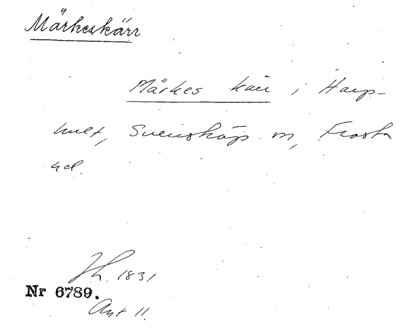 Märkeskärr
Märkes kärr i Harp-
hult, Svensköp sn, Frosta
hd.
Jh. 1831
Nr 6789.
Akt 11.